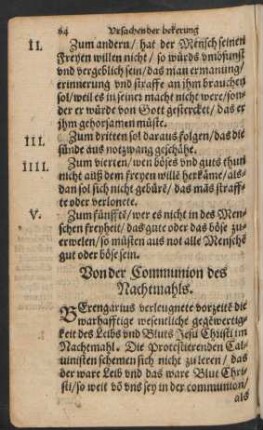 64 Vrsachen der bekerung
II. Zum andern/ hat der Mensch seinen
Freyen willen nicht/ so würds vmbsunst
vnd vergeblich sein/ das man ermanung/
erinnerung vnd straffe an jhn brauchen
sol/ weil es in seiner macht nicht were/ son-
der er würde von Gott gestercket/ das er
jhm gehorsamen müste.
III. Zum dritten sol daraus folgen/ das die
sünde aus notzwang geschähe.
IIII. Zum vierten/ wen böses vnd guts thun
nicht auß dem freyen wille herkäme/ als-
dan sol sich nicht gebürē/ das mās straff-
te oder verlonete.
V. Zum fünfftē/ wer es nicht in des Men-
schen freyheit/ das gute oder das böse zu-
erwelen/ so müsten aus not alle Menschē
gut oder böse sein.
Von der Communion des
Nachtmahls.
BErengarius verleugnete vorzeitē die
warhafftige wesentliche gegēwertig-
keit des Leibs vnd Bluts Jesu Christi im
Nachtmahl. Die Protestierenden Cal-
uinisten schemen sich nicht zu leren/ das
der ware Leib vnd das ware Blut Chri-
sti/ so weit vō vns sey in der communion/
als